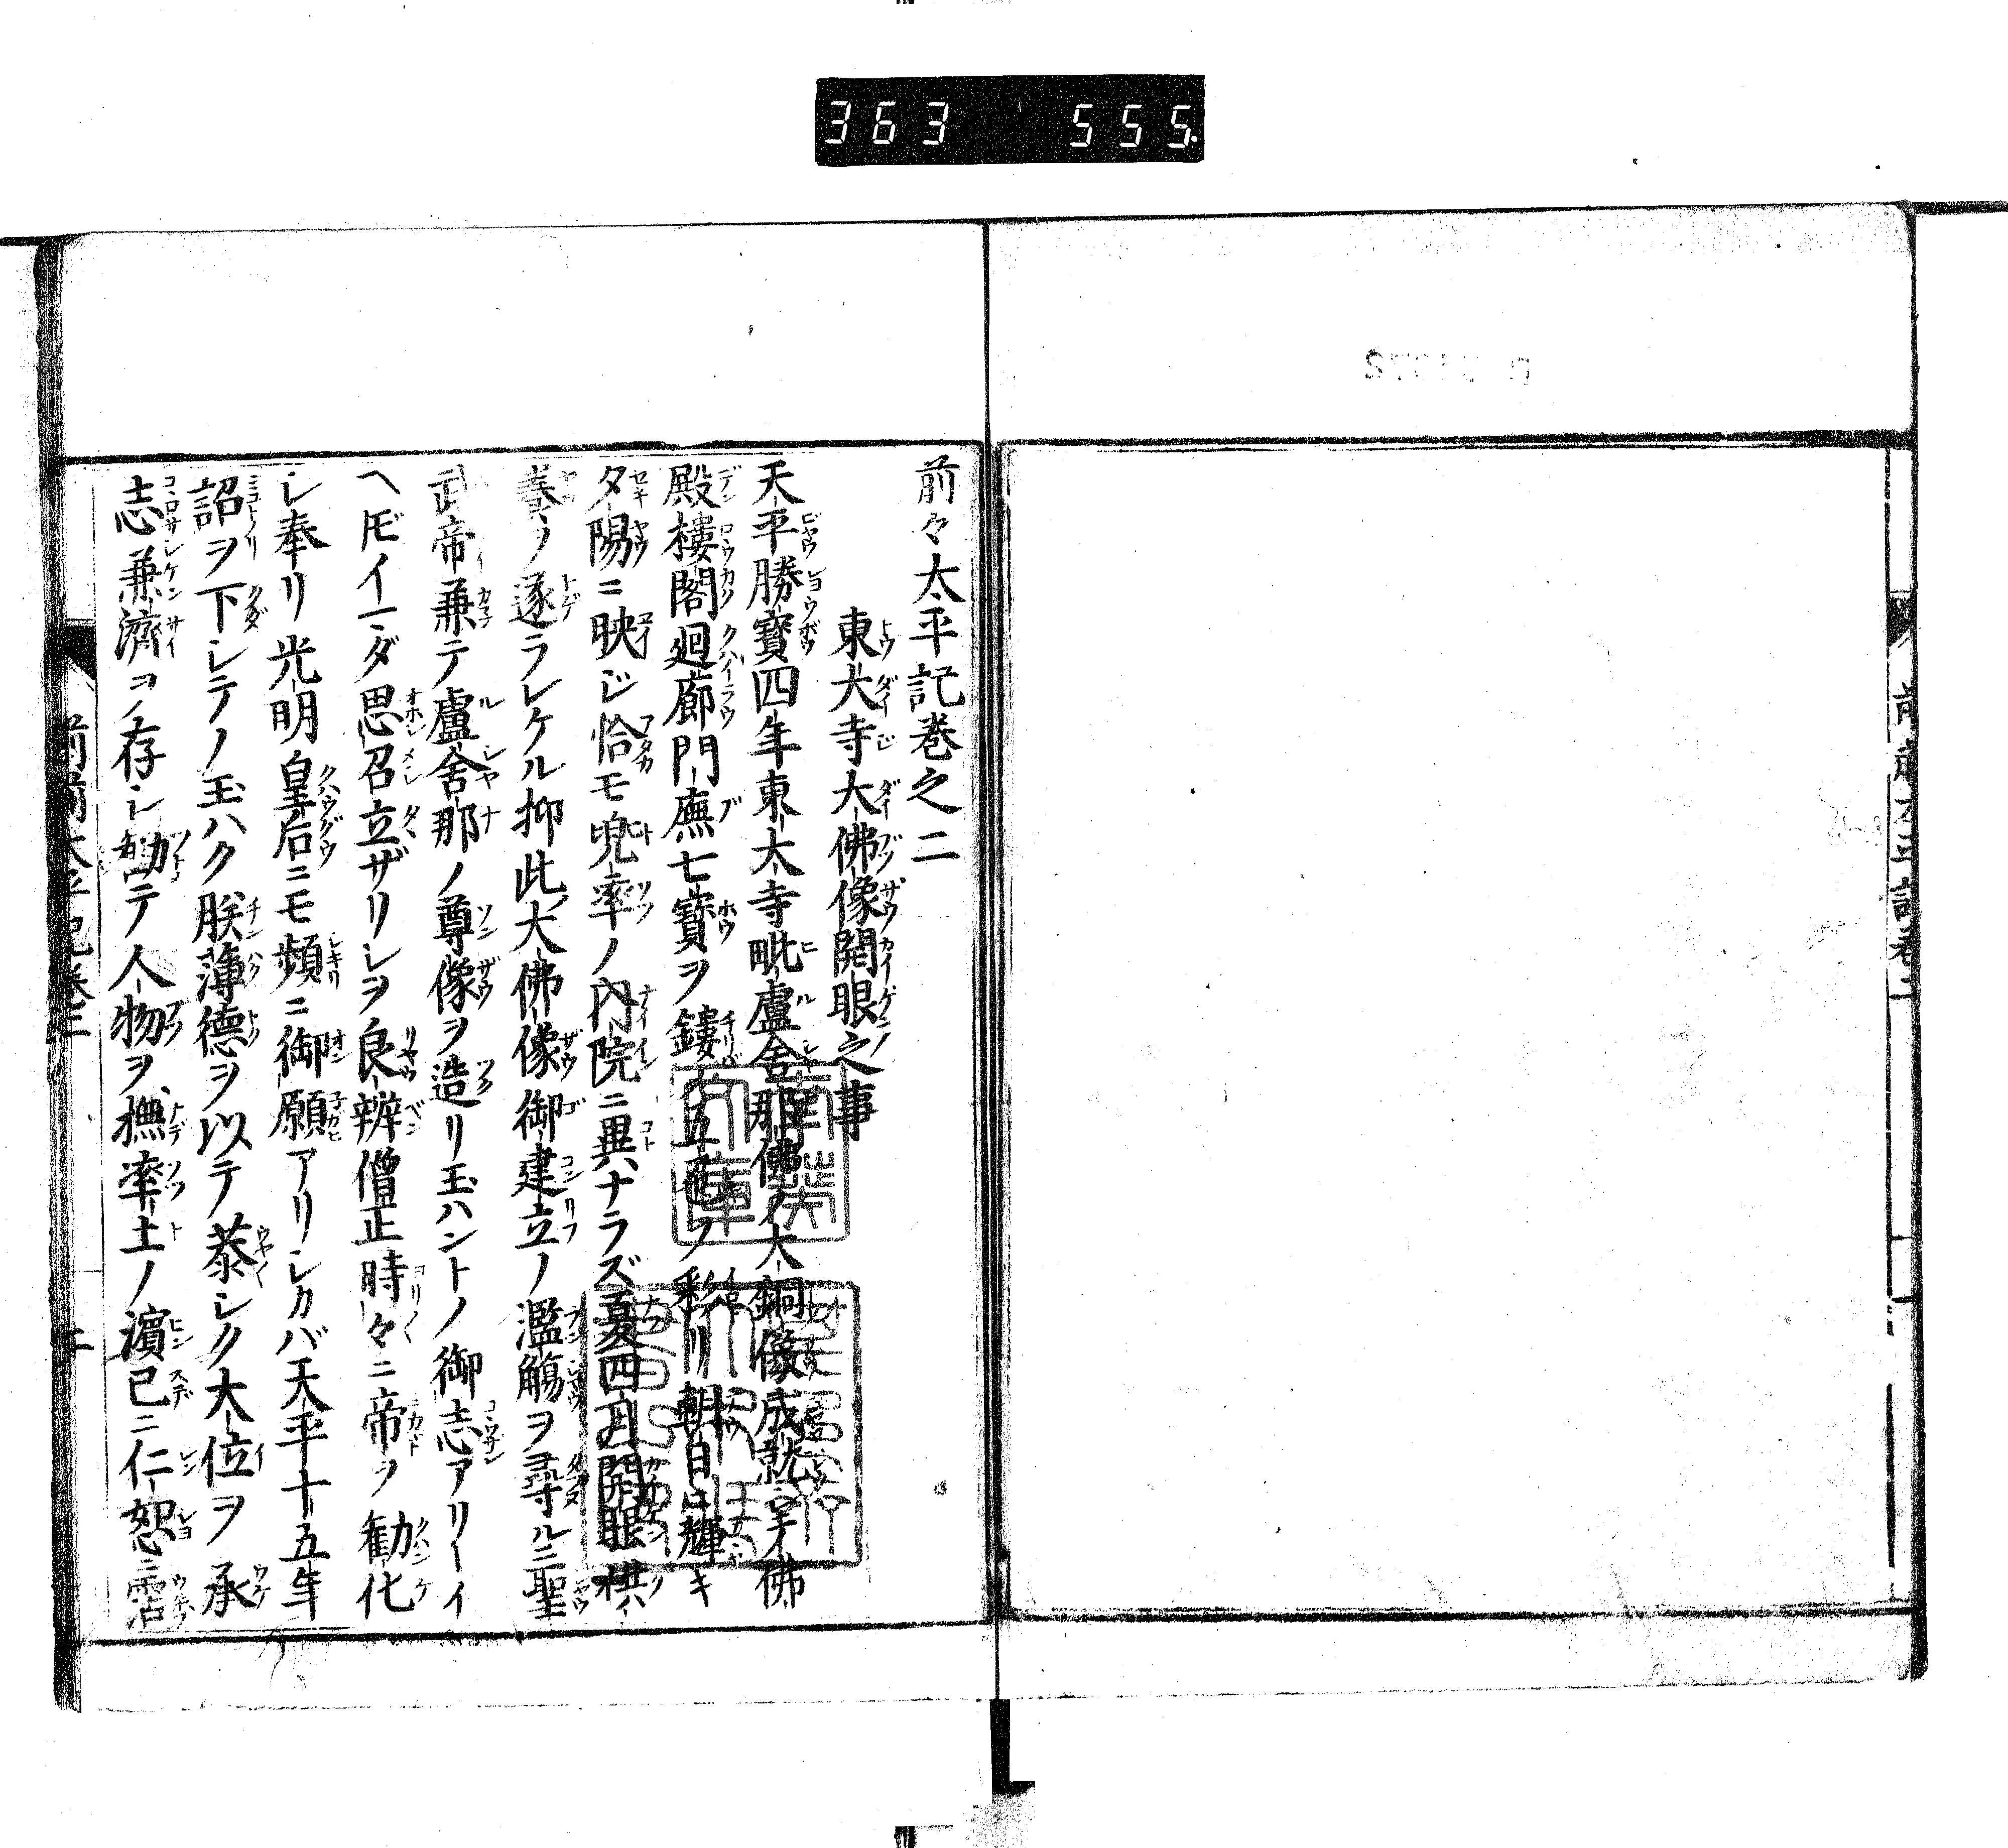 363 555
前々太平記巻之二
東大寺大佛像開眼之事
天平勝寳四年東大寺毗盧舎那佛ノ大銅像成就シ佛
殿樓閣廻廊門廡七寳ヲ鏤メ五色ヲ彩リ朝日ニ輝キ
夕陽ニ映ジ恰モ兜率ノ内院ニ異ナラズ夏四月開眼供
養ヲ遂ラレケル抑此大佛像御建立ノ濫觴ヲ尋ルニ聖
武帝兼テ盧舎那ノ尊像ヲ造リ玉ハントノ御志アリトイ
ヘ𪜈イマダ思召立ザリシヲ良辨僧正時々ニ帝ヲ勧化
シ奉リ光明皇后ニモ頻ニ御願アリシカバ天平十五年
詔ヲ下シテノ玉ハク朕薄德ヲ以テ恭シク大位ヲ承
志兼濟ヲ存シ勤テ人物ヲ撫率土ノ濱已ニ仁恕ニ霑
前前太平記巻二